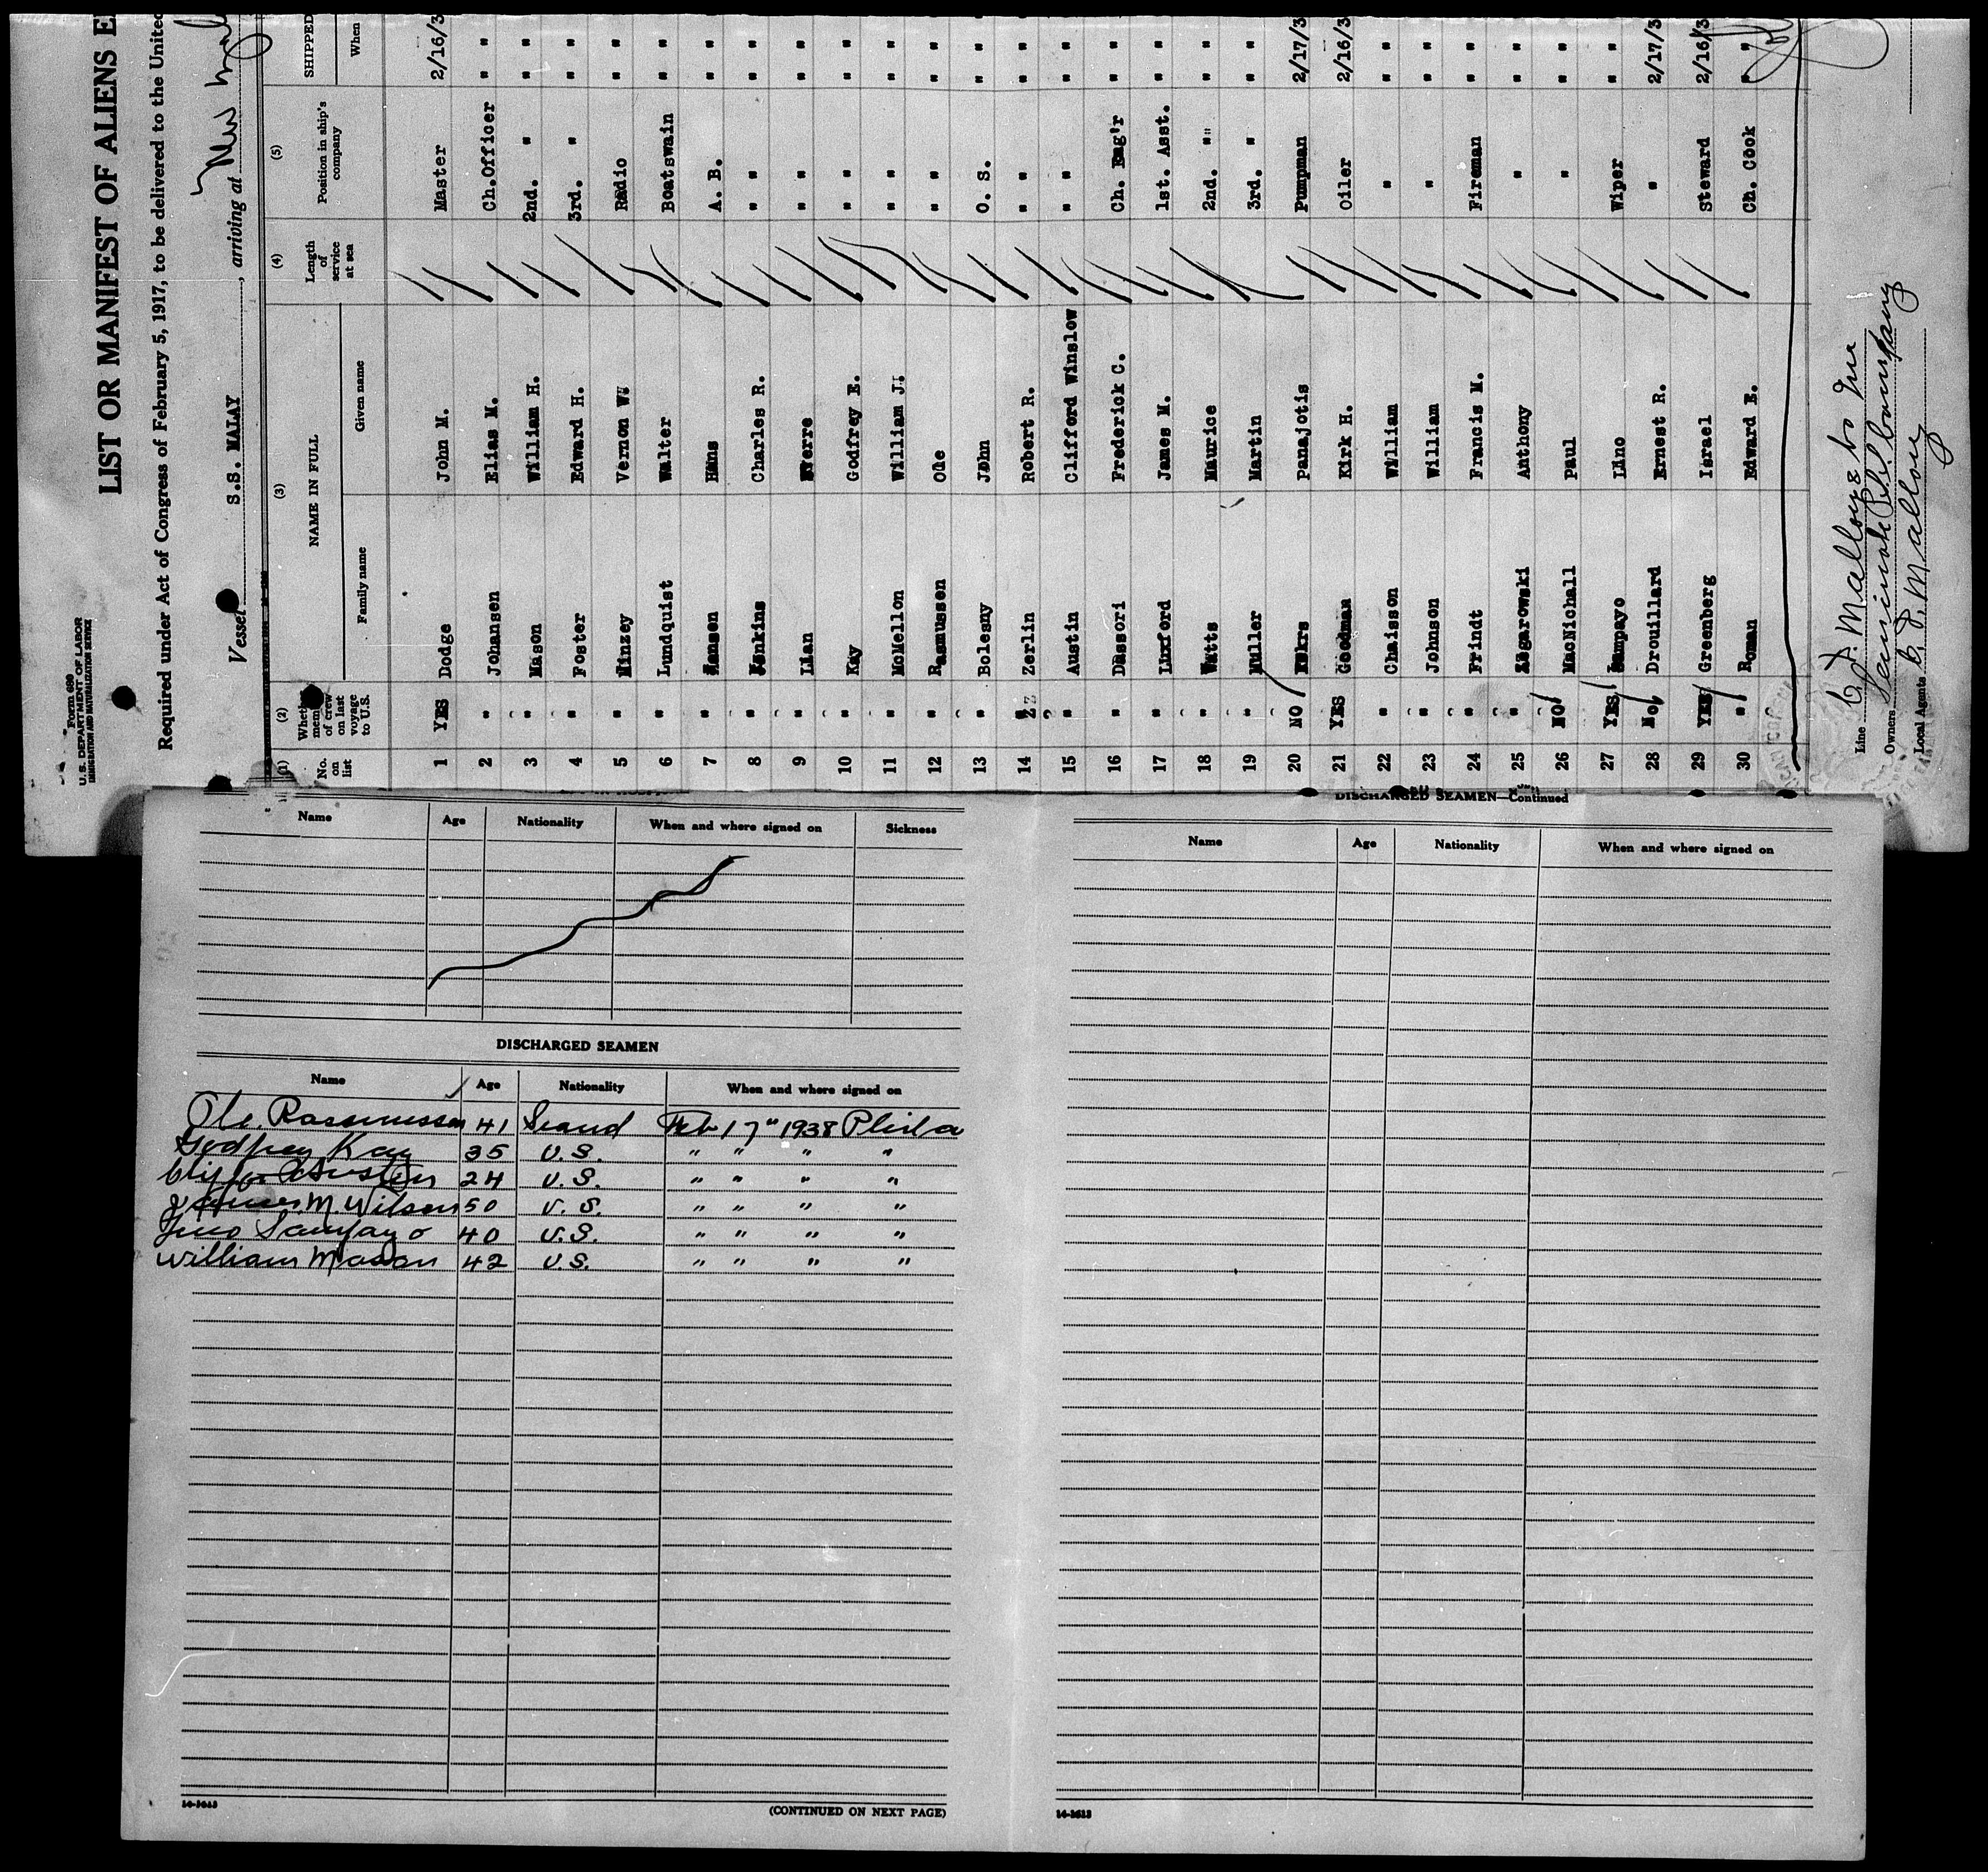 Form 689
U.S. DEPARTMENT OF LABOR
IMMIGRATION AND NATURALIZATION SERVICE
LIST OR MANIFEST OF ALIENS E
Required under Act of Congress of February 5, 1917, to be delivered to the United
Vessel S.S. MALAY, arriving at New
(1) (2) (3) (4) (5)
No. on list Whether member of crew on last voyage to U.S. NAME IN FULL Family name Given name Length of service at sea Position in ship's company SHIPPED When
1 YES Dodge John M. Master 2/16/3
2 " Johansen Elias M. Ch.Officer " "
3 " Mason William H. 2nd. " " "
4 " Foster Edward H. 3rd. " " "
5 " Minzey Vernon W. Radio " "
6 " Lundquist Walter Boatswain " "
7 " Hansen Hans A. B. " "
8 " Jenkins Charles R. " " "
9 " Lian Sverre " " "
10 " Kay Godfrey E. " " "
11 " McMellon William J. " " "
12 " Rasmussen Ole " " "
13 " Bolesny John O. S. " "
14 " Zerlin Robert R. " " "
15 " Austin Clifford Winslow " " "
16 " Dassori Frederick C. Ch. Eng'r " "
17 " Luxford James M. 1st. Asst. " "
18 " Watts Maurice 2nd. " " "
19 " Muller Martin 3rd. " " "
20 NO Panajotis Pumpman 2/17/3
21 YES Goodman Kirk H. Oiler 2/16/3
22 " Chaisson William " " "
23 " Johnson William " " "
24 " Frindt Francis M. Fireman " "
25 " Zegarowski Anthony " " "
26 NO MacNichall Paul " " "
27 YES Sampayo Lino Wiper " "
28 No Drouillard Ernest R. " 2/17/3
29 YES Greenberg Israel Steward 2/16/3
30 " Roman Edward E. Ch. Cook "
Line C. D. Mallory & Co Inc
Owners Seminole S.S. Company
Local Agents C. D. Mallory
Name Age Nationality When and where signed on Sickness
DISCHARGED SEAMEN
Name Age Nationality When and where signed on
Ole Rasmussen 41 Scand Feb 17" 1938 Phila
Godfrey Kay 35 U.S. " " " "
Austin 24 U.S. " " " "
James M. Wilson 50 U.S. " " " "
Lino Sampayo 40 U.S. " " " "
William Mason 42 U.S. " " " "
(CONTINUED ON NEXT PAGE)
DISCHARGED SEAMEN—Continued
Name Age Nationality When and where signed on